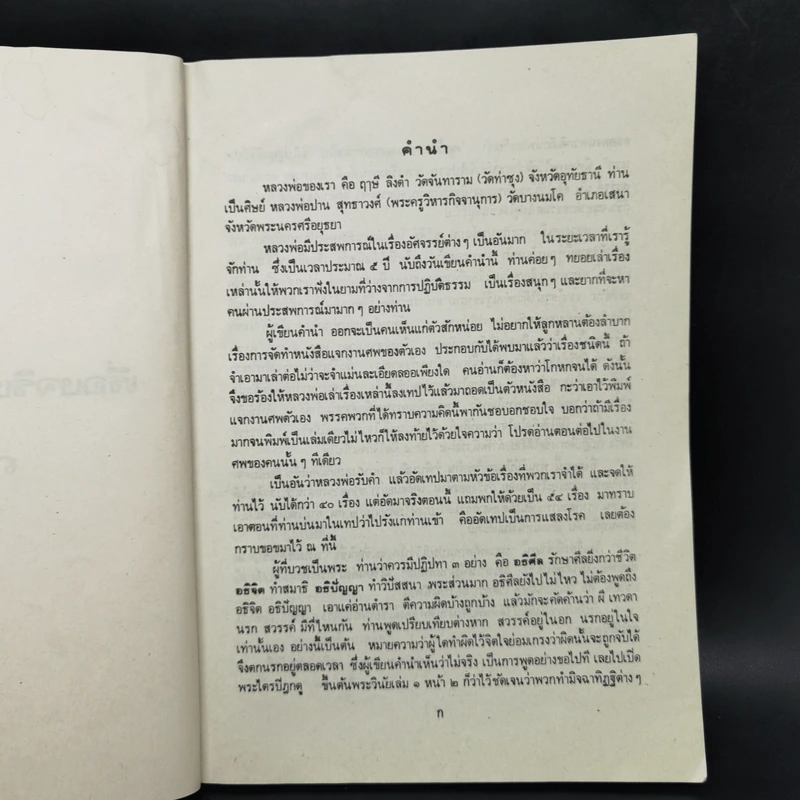 คำนำ
หลวงพ่อของเรา คือ ฤาษี ลิงดำ วัดจันทาราม (วัดท่าซุง) จังหวัดอุทัยธานี ท่าน
เป็นศิษย์ หลวงพ่อปาน สุทธาวงศ์ (พระครูวิหารกิจจานุการ) วัดบางนมโค อำเภอเสนา
จังหวัดพระนครศรีอยุธยา
หลวงพ่อมีประสพการณ์ในเรื่องอัศจรรย์ต่างๆ เป็นอันมาก ในระยะเวลาที่เรารู้
จักท่าน ซึ่งเป็นเวลาประมาณ ๕ ปี นับถึงวันเขียนคำนำนี้ ท่านค่อยๆ ทยอยเล่าเรื่อง
เหล่านั้นให้พวกเราฟังในยามที่ว่างจากการปฏิบัติธรรม เป็นเรื่องสนุกๆ และยากที่จะหา
คนผ่านประสพการณ์มามากๆ อย่างท่าน
ผู้เขียนคำนำ ออกจะเป็นคนเห็นแก่ตัวสักหน่อย ไม่อยากให้ลูกหลานต้องลำบาก
เรื่องการจัดทำหนังสือแจกงานศพของตัวเอง ประกอบกับได้พบมาแล้วว่าเรื่องชนิดนี้ ถ้า
จำเอามาเล่าต่อไม่ว่าจะจำแม่นละเอียดลออเพียงใด คนอ่านก็ต้องหาว่าโกหกจนได้ ดังนั้น
จึงขอร้องให้หลวงพ่อเล่าเรื่องเหล่านี้ลงเทปไว้แล้วมาถอดเป็นตัวหนังสือ กะว่าเอาไว้พิมพ์
แจกงานศพตัวเอง พรรคพวกที่ได้ทราบความคิดนี้พากันชอบอกชอบใจ บอกว่าถ้ามีเรื่อง
มากจนพิมพ์เป็นเล่มเดียวไม่ไหวก็ให้ลงท้ายไว้ด้วยใจความว่า โปรดอ่านตอนต่อไปในงาน
ศพของคนนั้นๆ ทีเดียว
เป็นอันว่าหลวงพ่อรับคำ แล้วอัดเทปมาตามหัวข้อเรื่องที่พวกเราจำได้ และจดให้
ท่านไว้ นับได้กว่า ๔๐ เรื่อง แต่อัดมาจริงตอนนี้ แถมพกให้ด้วยเป็น ๕๔ เรื่อง มาทราบ
เอาตอนที่ท่านบ่นมาในเทปว่าไปรังแกท่านเข้า คืออัดเทปเป็นการแสลงโรค เลยต้อง
กราบขอขมาไว้ ณ ที่นี้
ผู้ที่บวชเป็นพระ ท่านว่าควรมีปฏิปทา ๓ อย่าง คือ อธิศีล รักษาศีลยิ่งกว่าชีวิต
อธิจิต ทำสมาธิ อธิปัญญา ทำวิปัสสนา พระส่วนมาก อธิศีลยังไปไม่ไหว ไม่ต้องพูดถึง
อธิจิต อธิปัญญา เอาแค่อ่านตำรา ตีความผิดบ้างถูกบ้าง แล้วมักจะคัดค้านว่า ผี เทวดา
นรก สวรรค์ มีที่ไหนกัน ท่านพูดเปรียบเทียบต่างหาก สวรรค์อยู่ในอก นรกอยู่ในใจ
เท่านั้นเอง อย่างนี้เป็นต้น หมายความว่าผู้ใดทำผิดไว้จิตใจย่อมเกรงว่าผิดนั้นจะถูกจับได้
จึงตกนรกอยู่ตลอดเวลา ซึ่งผู้เขียนคำนำเห็นว่าไม่จริง เป็นการพูดอย่างขอไปที เลยไปเปิด
พระไตรปิฎกดู ขึ้นต้นพระวินัยเล่ม ๑ หน้า ๒ ก็ว่าไว้ชัดเจนว่าพวกทำมิจฉาทิฏฐิต่างๆ
ก